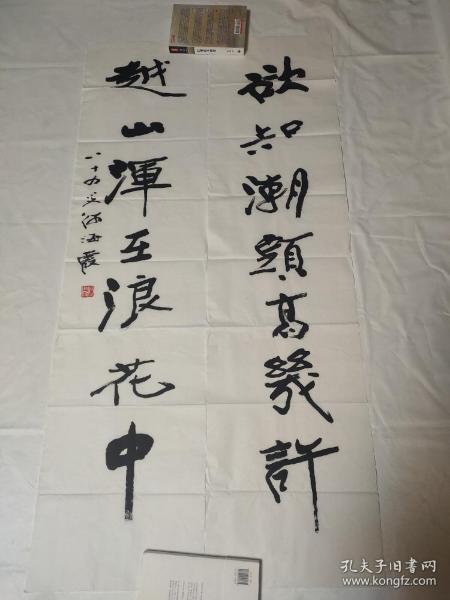 欲知潮頭高幾許
越山渾在浪花中
八十九叟孫海霞
孔夫子旧书网
www.kongfz.com